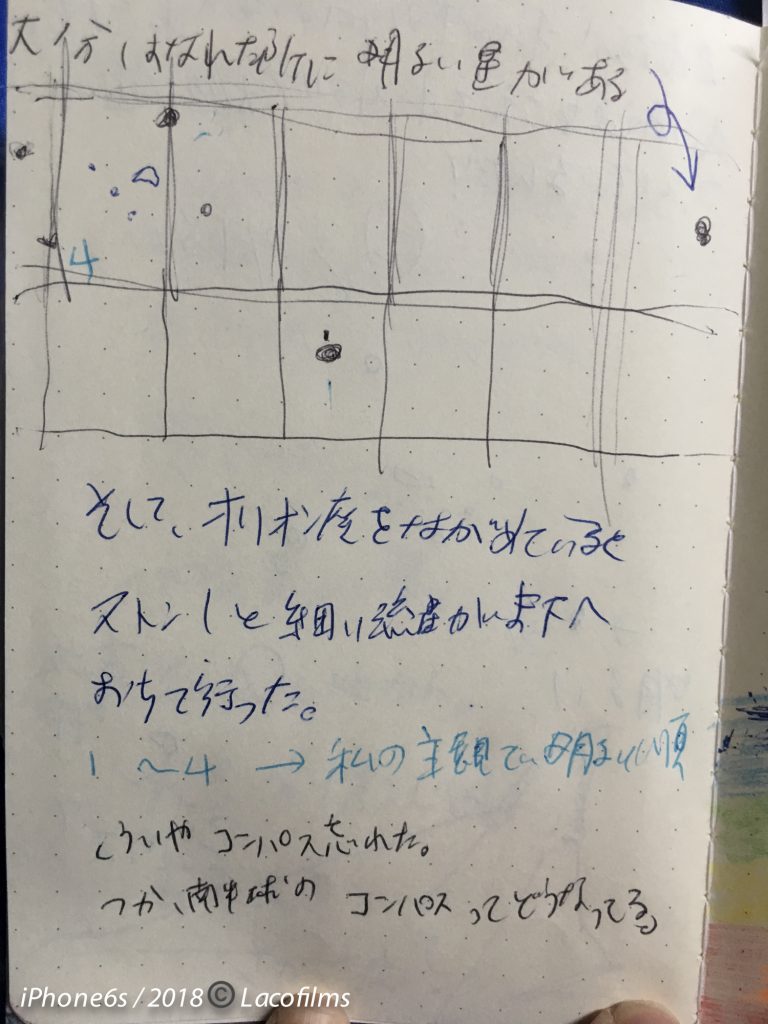 大分はなれた所に明るい星がある
4
1
そして、オリオン座をながめていると
ストンーと細い流星が真下へ
おちて行った。
1 〜4 → 私の主観で明るい順
そういや コンパス忘れた。
つか、南半球の コンパスってどうなってる。
iPhone6s / 2018 © Lacofilms